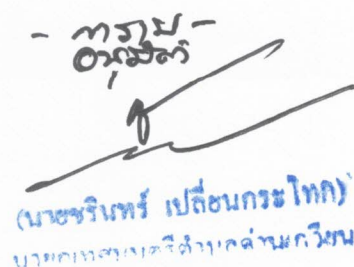 - ทราบ -
อนุมัติ
(นายชรินทร์ เปลื่อนกระโทก)
นายกเทศมนตรีตำบลด่านเกวียน